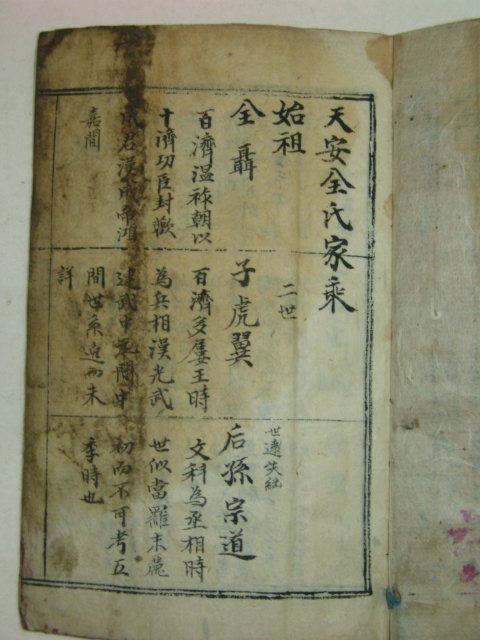 天安全氏家乘
始祖
全聶
百濟溫祚朝以
十濟功臣封歡
城君漢成帝鴻
嘉間
二世
子虎翼
百濟多婁王時
為兵相漢光武
建武中間中
間世系遠而未
詳
世遠失
后孫宗道
文科為丞相時
世似當羅末麗
初而不可考五
季時也